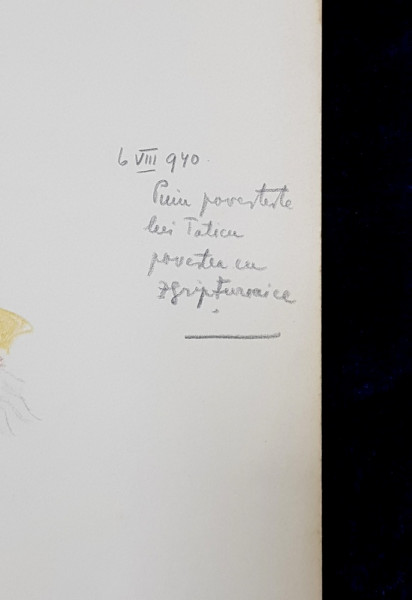 6 VIII 940.
Puiu povestește
lui Taticu
povestea cu
zgripțuroaice